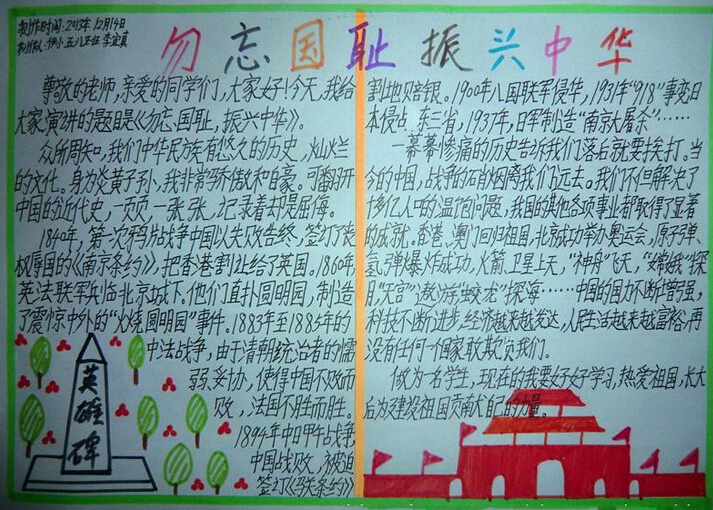 制作时间:2013年12月14日
制作人:伊小五八五班 李宜真
勿忘国耻 振兴中华
尊敬的老师,亲爱的同学们,大家好!今天,我给
大家演讲的题目是《勿忘国耻,振兴中华》。
众所周知,我们中华民族有悠久的历史,灿烂
的文化。身为炎黄子孙,我非常骄傲和自豪。可翻开
中国的近代史,一页页,一张张,记录着却是屈侮。
1840年,第一次鸦片战争中国以失败告终,签订了丧
权辱国的《南京条约》,把香港割让给了英国。1860年
英法联军兵临北京城下。他们直扑圆明园,制造
了震惊中外的"火烧圆明园"事件。1883年至1885年的
中法战争,由于清朝统治者的懦
弱、妥协,使得中国不败而
败,法国不胜而胜。
1894年中日甲午战争,
中国战败,被迫
签订《马关条约》
英雄碑
割地贝音银。1900年八国联军侵华,1931年"918"事变日
本侵占东三省,1937年,日军制造"南京大屠杀"……
一幕幕惨痛的历史告诉我们落后就要挨打。当
今的中国,战争的硝烟离我们远去。我们不但解决了
十多亿人口的温饱问题,我国的其他各项事业都取得了显著
的成就。香港、澳门回归祖国,北京成功举办奥运会,原子弹、
氢弹爆炸成功,火箭、卫星上天,"神舟"飞天,"嫦娥"探
月,"天宫"遨游,"蛟龙"探海……中国的国力不断增强,
科技不断进步,经济越来越发达,人民生活越来越富裕,再
没有任何一个国家敢欺负我们。
做为一名学生,现在的我要好好学习,热爱祖国,长大
后为建设祖国贡献自己的力量。